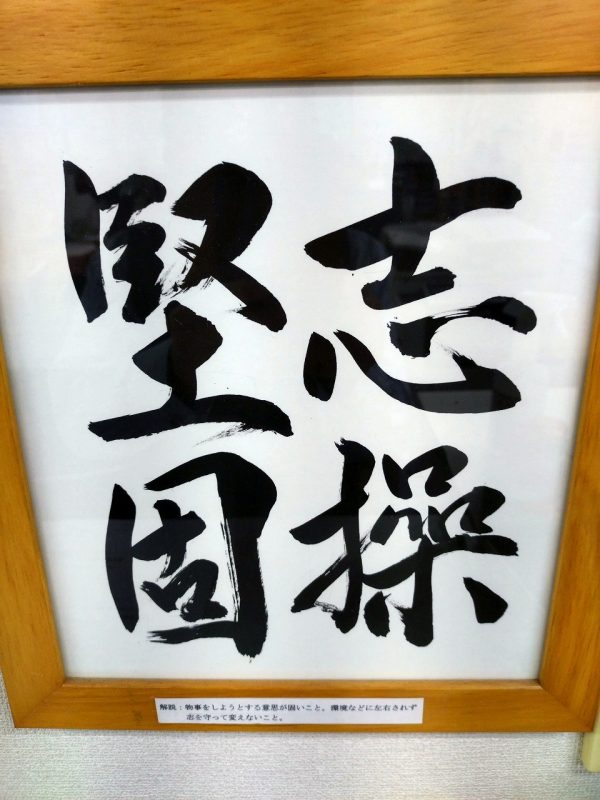 志操
堅固
解説：物事をしようとする意思が固いこと。環境などに左右されず
志を守って変えないこと。